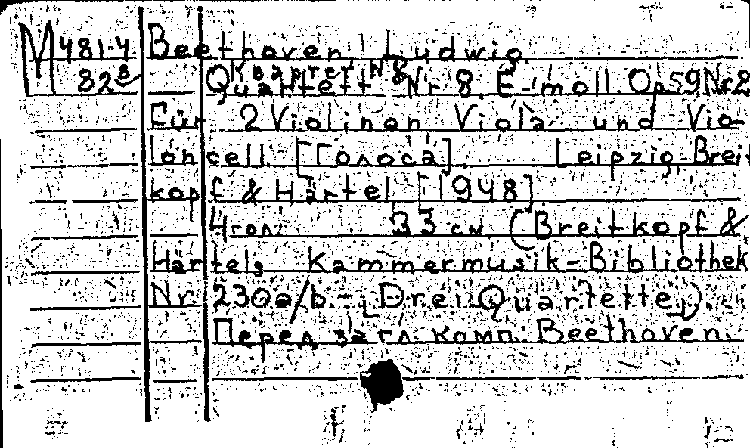 M 481-4 Beethoven, Ludwig.
82 8 Квартет № 8
Quartett Nr 8. E-moll. Op 59 Nr 2
für 2 Violinen Viola und Vio-
loncell. [Голоса]. Leipzig, Breit
kopf & Härtel [1948]
4 гол. 33 см. (Breitkopf &
Härtels Kammermusik-Bibliothek
Nr 230a/b.- Drei Quartette).
Перед загл. комп.: Beethoven.